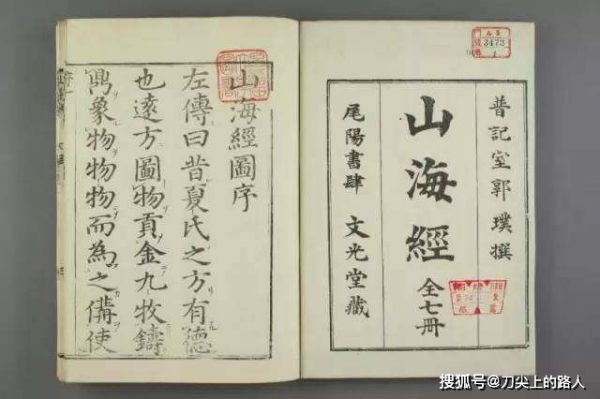 晉記室郭璞撰
山海經 全七冊
尾陽書肆 文光堂藏
3473
1
山海經圖序
左傳曰昔夏氏之方有德
也遠方圖物貢金九牧鑄
鼎象物物物而為之備使
搜狐号@刀尖上的路人